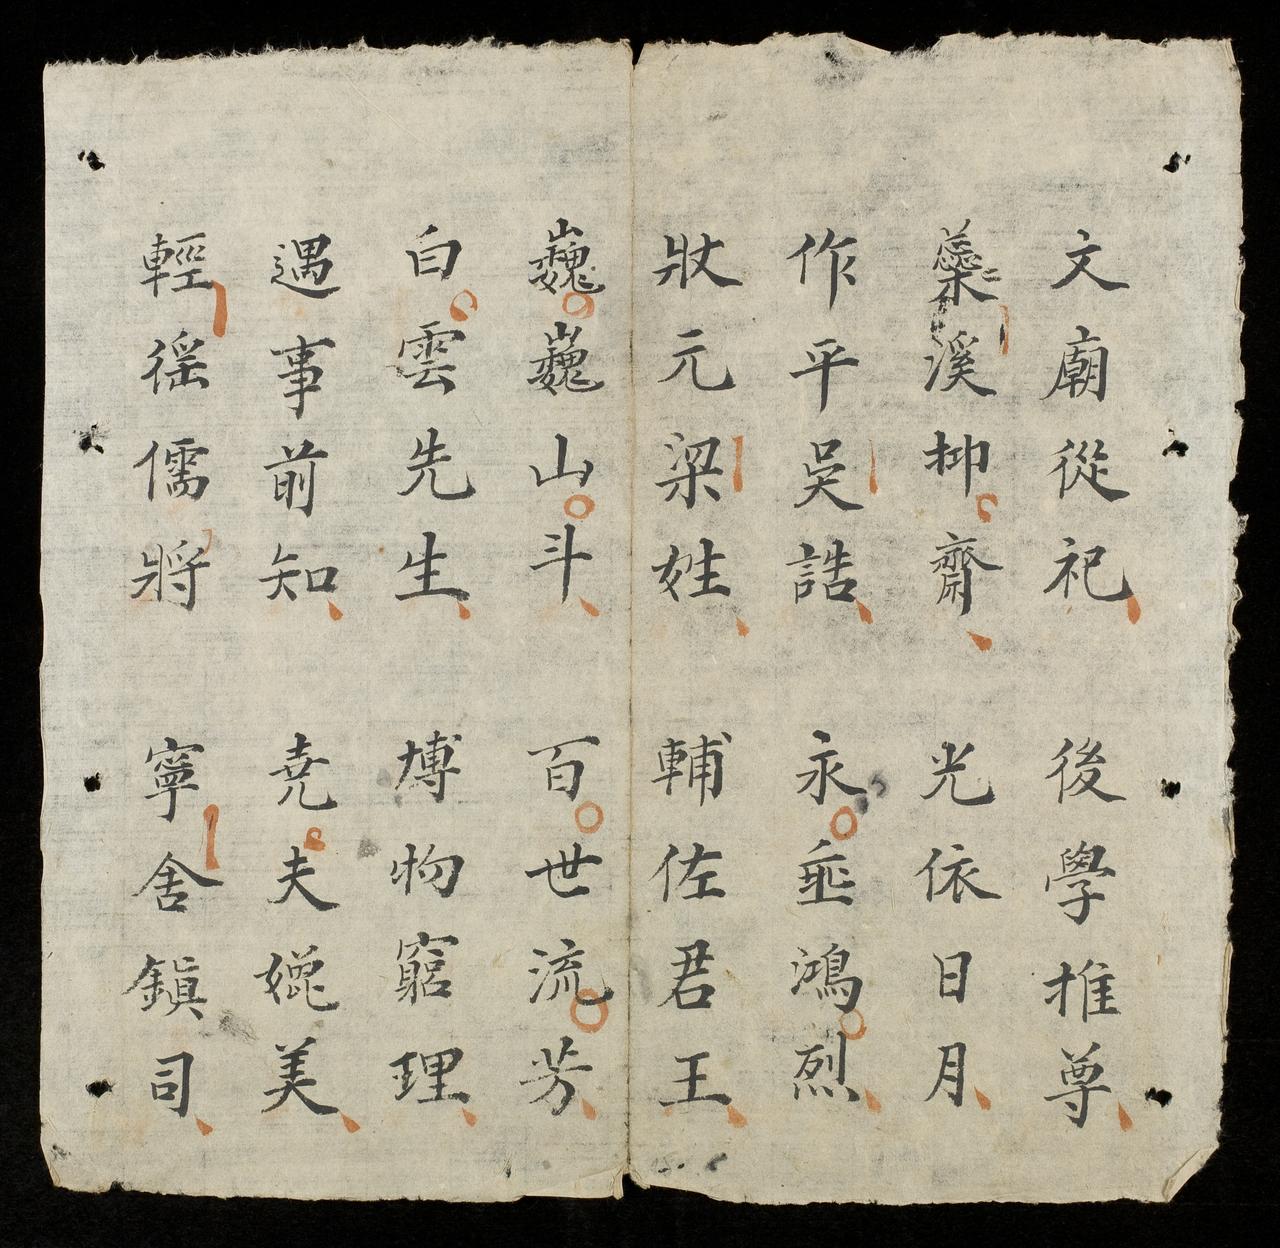 文廟從祀 後學推尊
蘂溪抑齋 光依日月
作平吴誥 永垂鴻烈
狀元梁姓 輔佐君王
巍巍山斗 百世流芳
白雲先生 博物窮理
遇事前知 尭夫媲美
輕徭儒將 寧舍鎭司